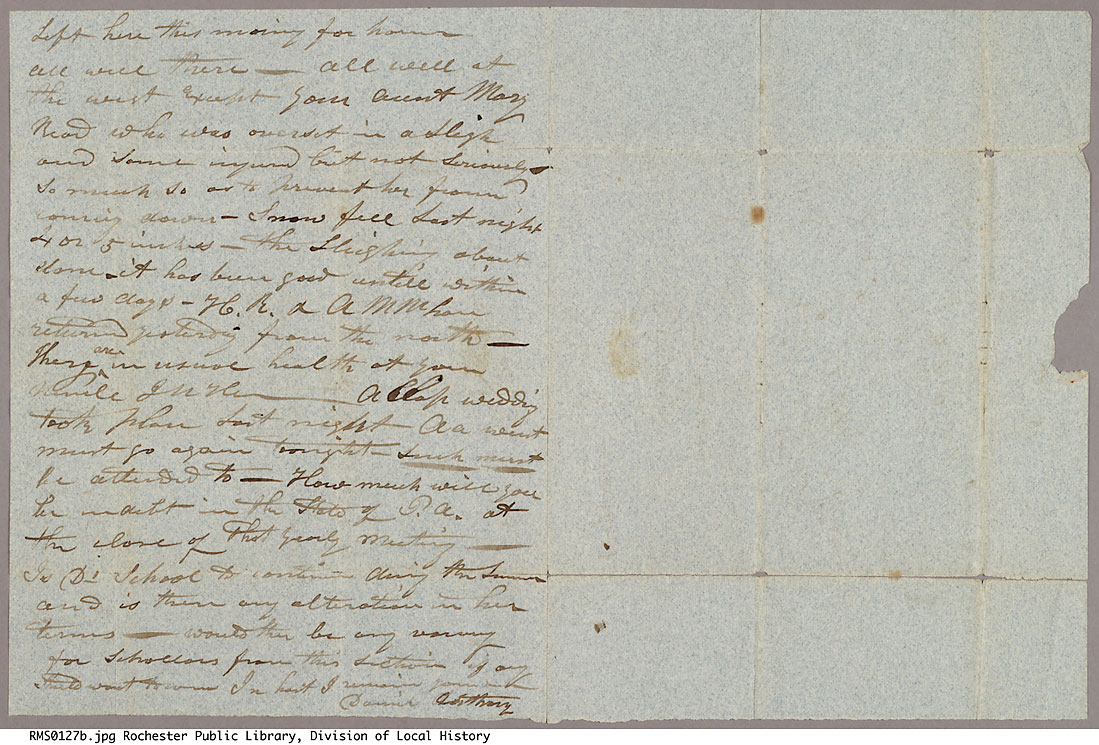 Left here this morning for home
all well there — all well at
the west Except your aunt Mary
Read who was overset in a Sleigh
and some injured but not seriously
so much so as to prevent her from
coming down — Snow fell last night
4 or 5 inches — the Sleighing about
done — it has been good untill within
a few days — H. R. & A M have
returned yesterday from the north —
There are in usual health at your
uncle — a wedding
took place last night
must go again tonight — such must
be attended to — How much will you
be in debt in the State of P. A. at
the close of That Yearly Meeting —
Is Ds School to continue during the Summer
and is there any alteration in her
terms — would ther be any
for schollars from this Section if any
should want to come In hast I remain
Daniel Anthony
RMS0127b.jpg Rochester Public Library, Division of Local History